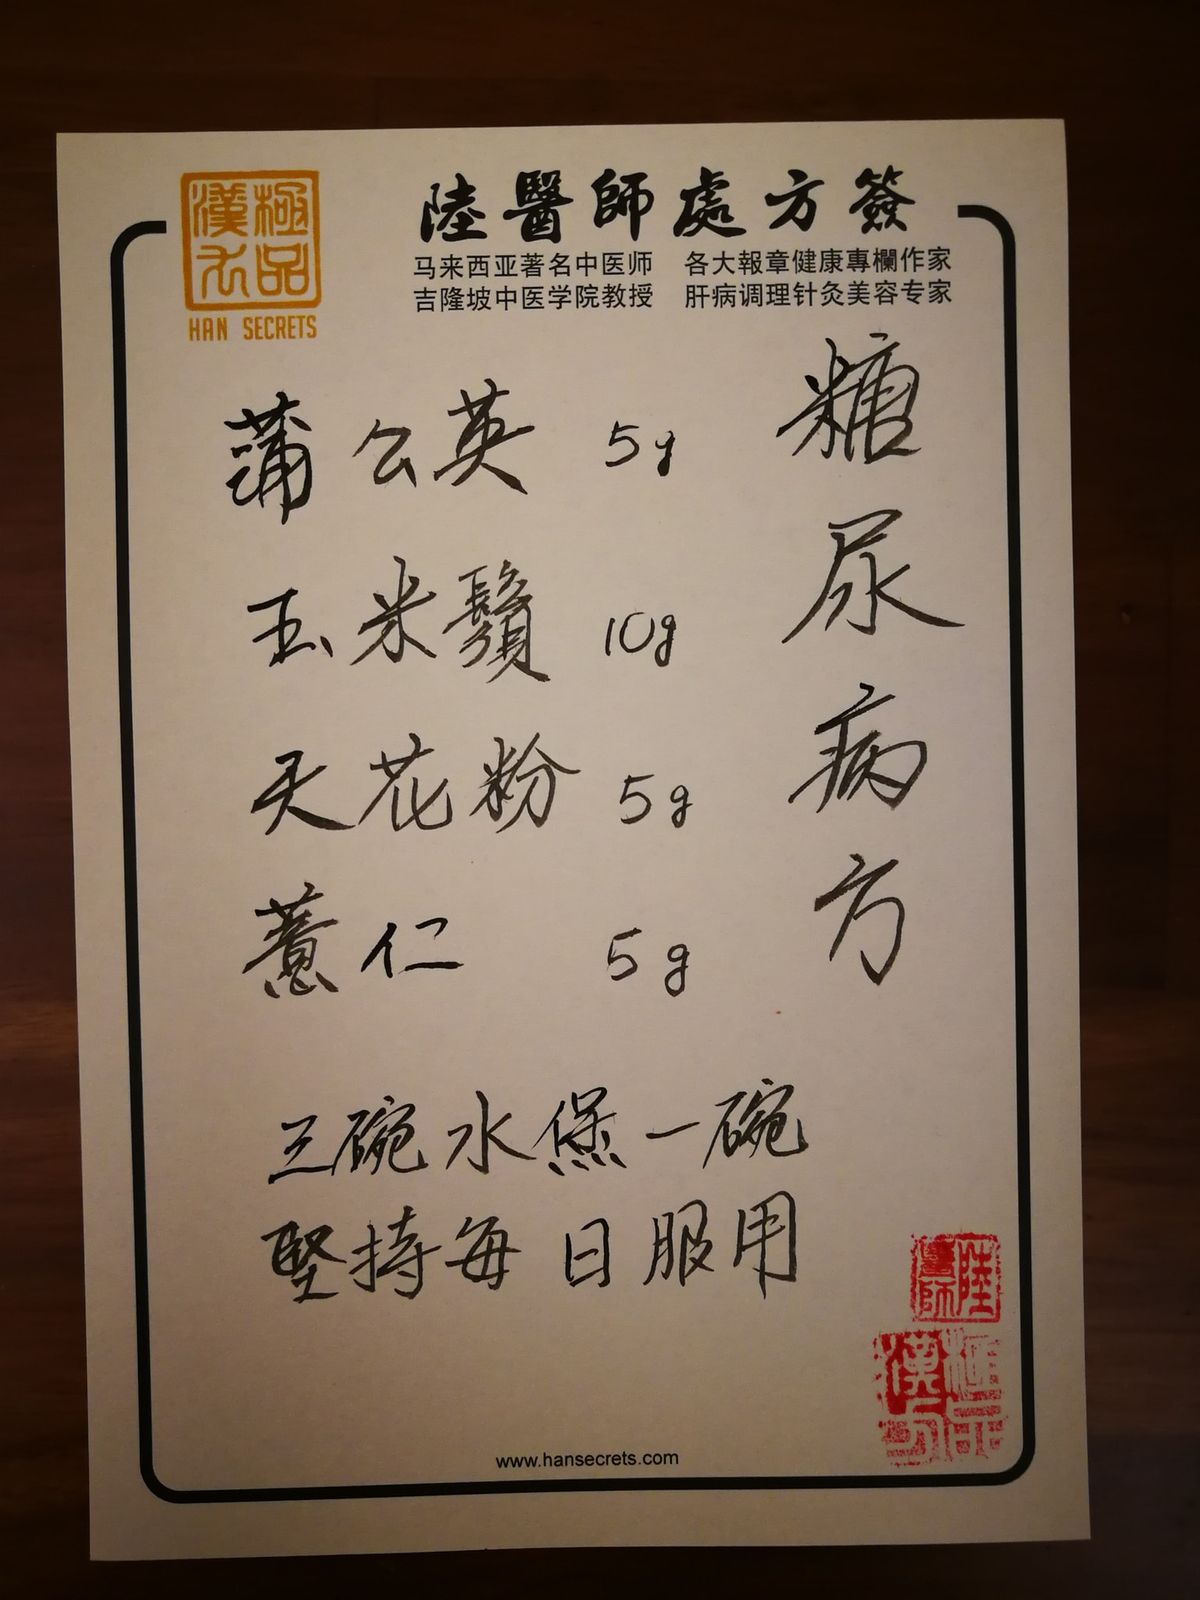 極品
漢方
HAN SECRETS
陸醫師處方簽
马来西亚著名中医师 各大報章健康專欄作家
吉隆坡中医学院教授 肝病调理针灸美容专家
糖尿病方
蒲公英 5g
玉米鬚 10g
天花粉 5g
薏仁 5g
三碗水煲一碗
堅持每日服用
陸醫師
極品漢方
www.hansecrets.com